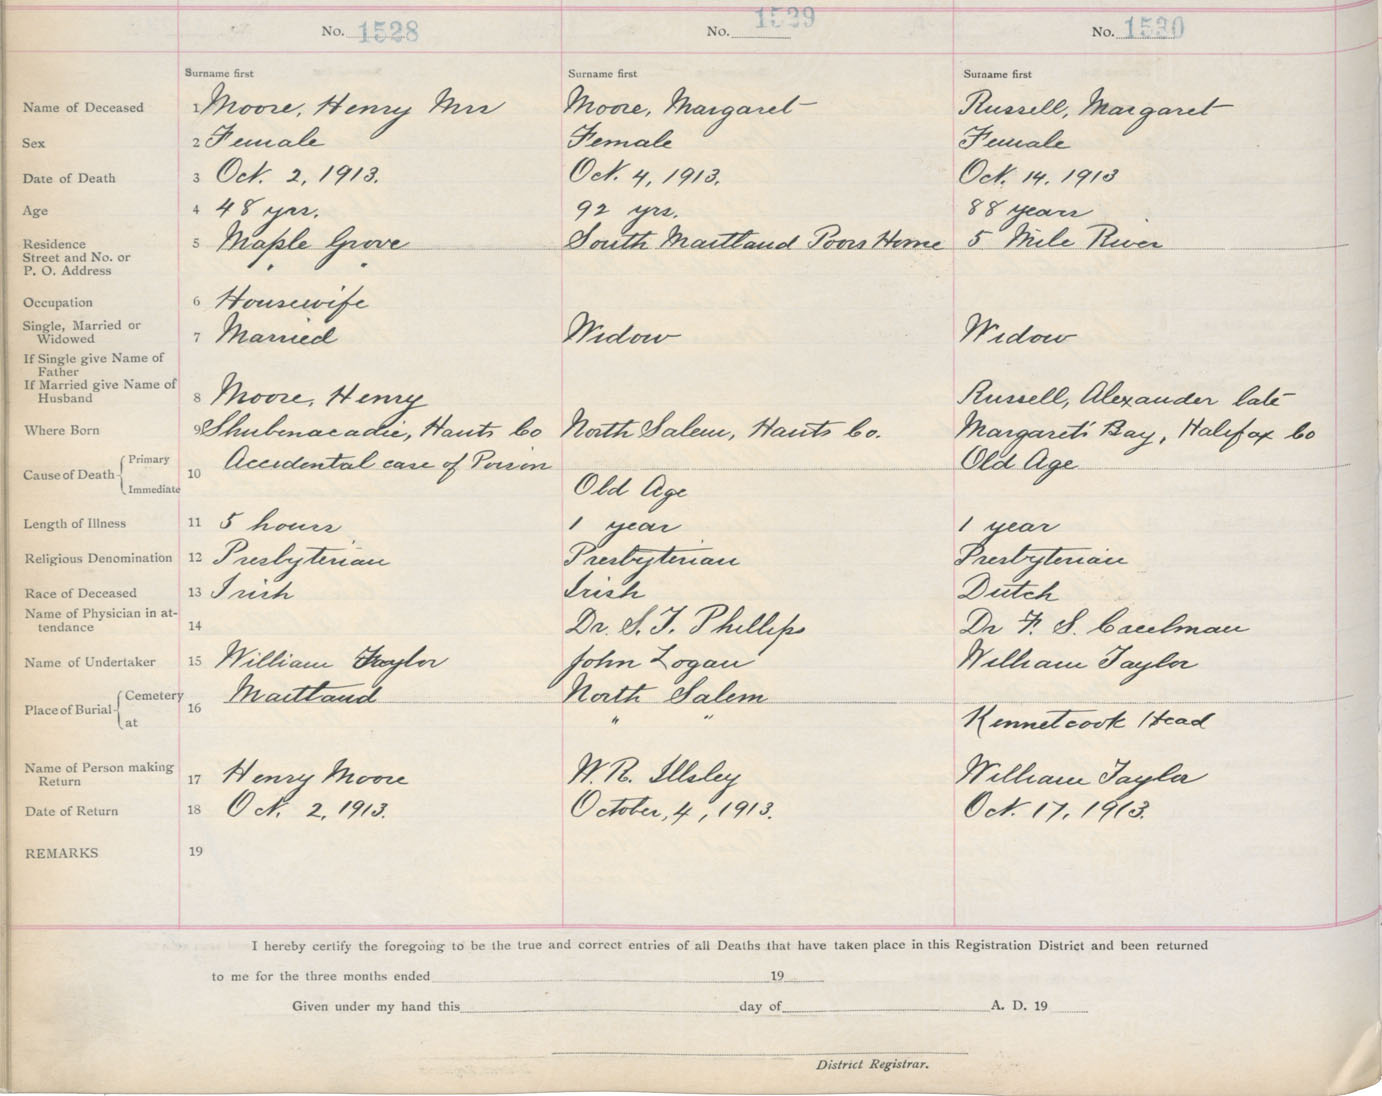 No. 1528 No. 1529 No. 1530
Surname first Surname first Surname first
Name of Deceased 1 Moore, Henry Mrs Moore, Margaret Russell, Margaret
Sex 2 Female Female Female
Date of Death 3 Oct. 2, 1913. Oct. 4, 1913. Oct. 14, 1913
Age 4 48 yrs. 92 yrs. 88 years
Residence 5 Maple Grove South Maitland Poors Home 5 Mile River
Street and No. or
P. O. Address
Occupation 6 Housewife
Single, Married or
Widowed 7 Married Widow Widow
If Single give Name of
Father
If Married give Name of
Husband 8 Moore, Henry Russell, Alexander late
Where Born 9 Shubenacadie, Hants Co North Salem, Hants Co. Margaret's Bay, Halifax Co
Cause of Death Primary 10 Accidental case of Poison Old Age
Immediate Old Age
Length of Illness 11 5 hours 1 year 1 year
Religious Denomination 12 Presbyterian Presbyterian Presbyterian
Race of Deceased 13 Irish Irish Dutch
Name of Physician in at-
tendance 14 Dr. S. T. Phillips Dr F. S.
Name of Undertaker 15 William Taylor John Logan William Taylor
Place of Burial Cemetery 16 Maitland North Salem
at " " Kennetcook Head
Name of Person making
Return 17 Henry Moore W. R. Illsley William Taylor
Date of Return 18 Oct. 2, 1913. October, 4, 1913. Oct. 17, 1913.
REMARKS 19
I hereby certify the foregoing to be the true and correct entries of all Deaths that have taken place in this Registration District and been returned
to me for the three months ended 19
Given under my hand this day of A. D. 19
District Registrar.